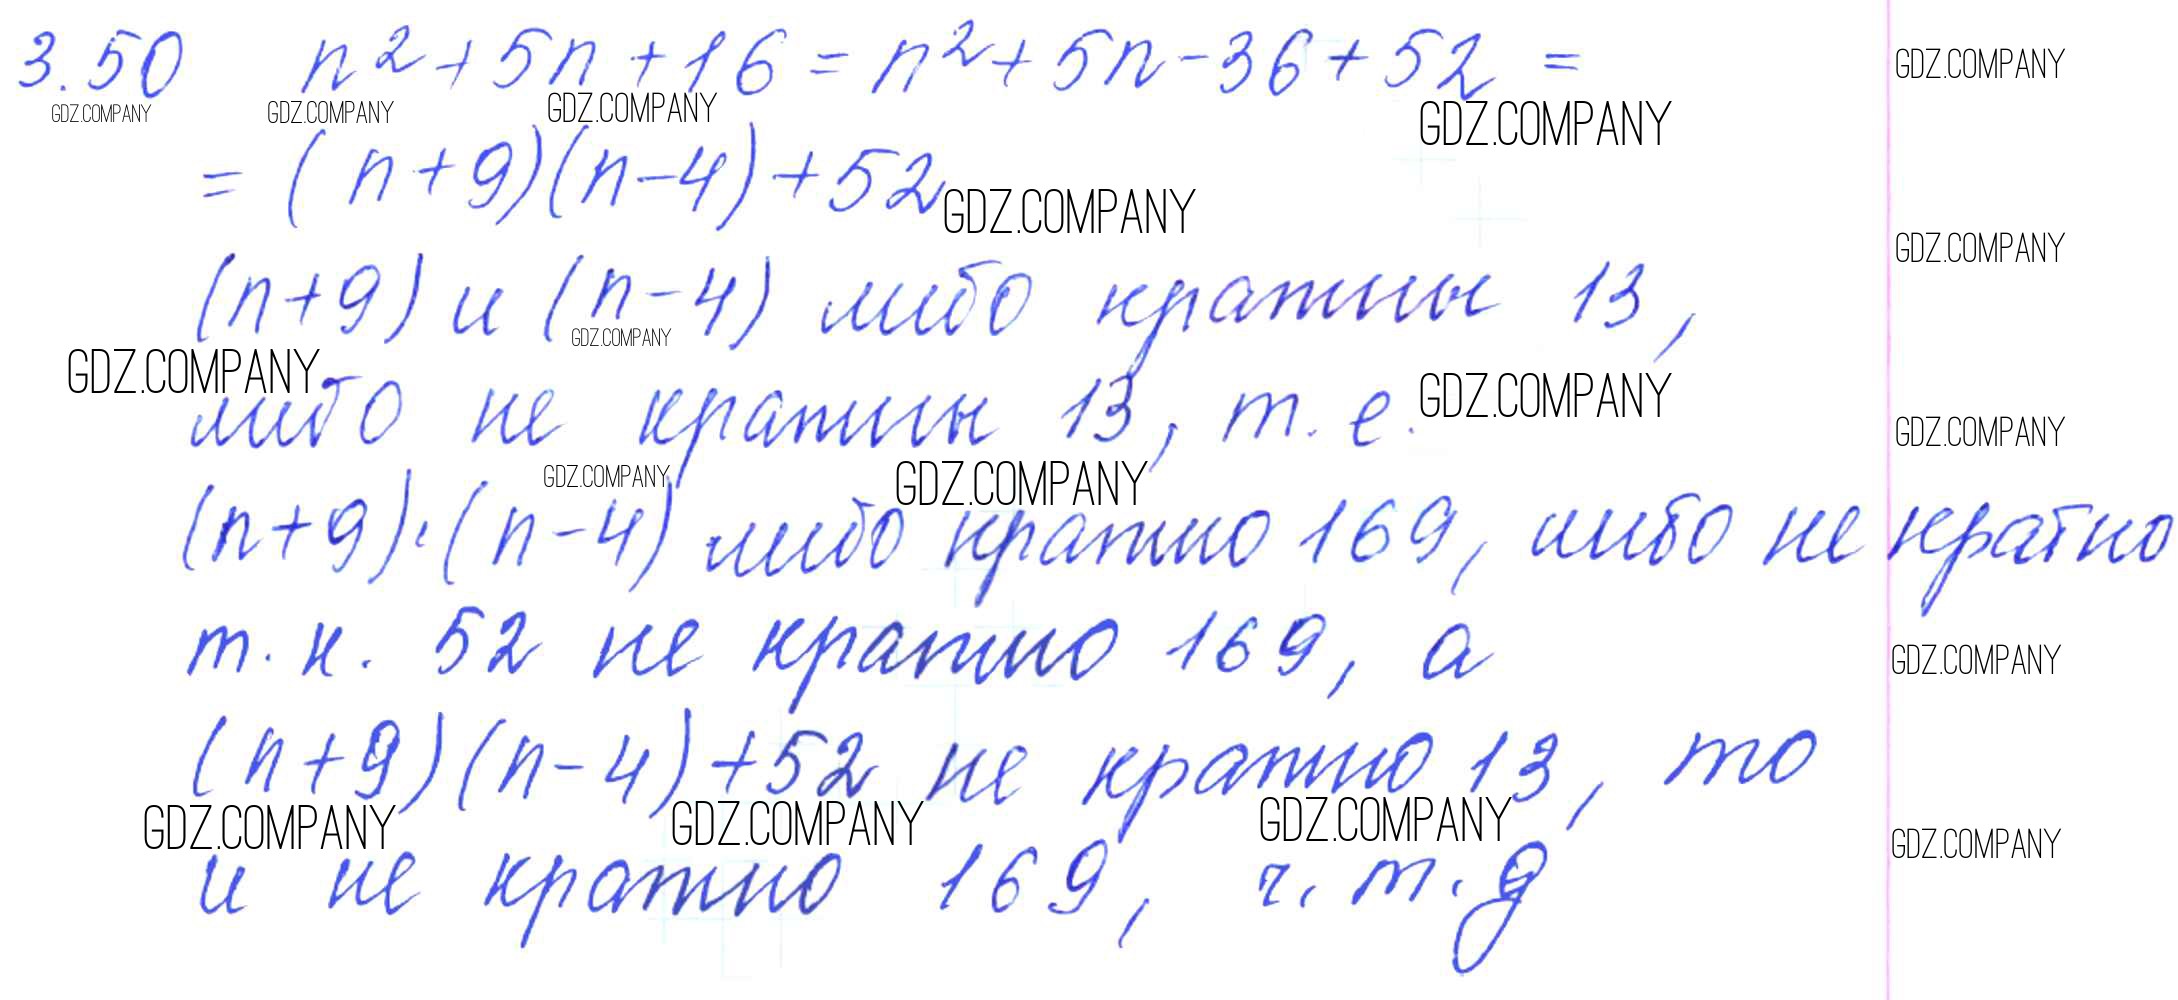 3.50 n²+5n+16=n²+5n-36+52=
GDZ.COMPANY
GDZ.COMPANY GDZ.COMPANY GDZ.COMPANY GDZ.COMPANY
=(n+9)(n-4)+52
GDZ.COMPANY
GDZ.COMPANY
(n+9) и (n-4) либо кратны 13,
GDZ.COMPANY
GDZ.COMPANY GDZ.COMPANY
либо не кратны 13, т.е.
GDZ.COMPANY
GDZ.COMPANY GDZ.COMPANY
(n+9)·(n-4) либо кратно 169, либо не кратно
т.к. 52 не кратно 169, а
GDZ.COMPANY
(n+9)(n-4)+52 не кратно 13, то
GDZ.COMPANY GDZ.COMPANY GDZ.COMPANY GDZ.COMPANY
и не кратно 169, ч.т.д